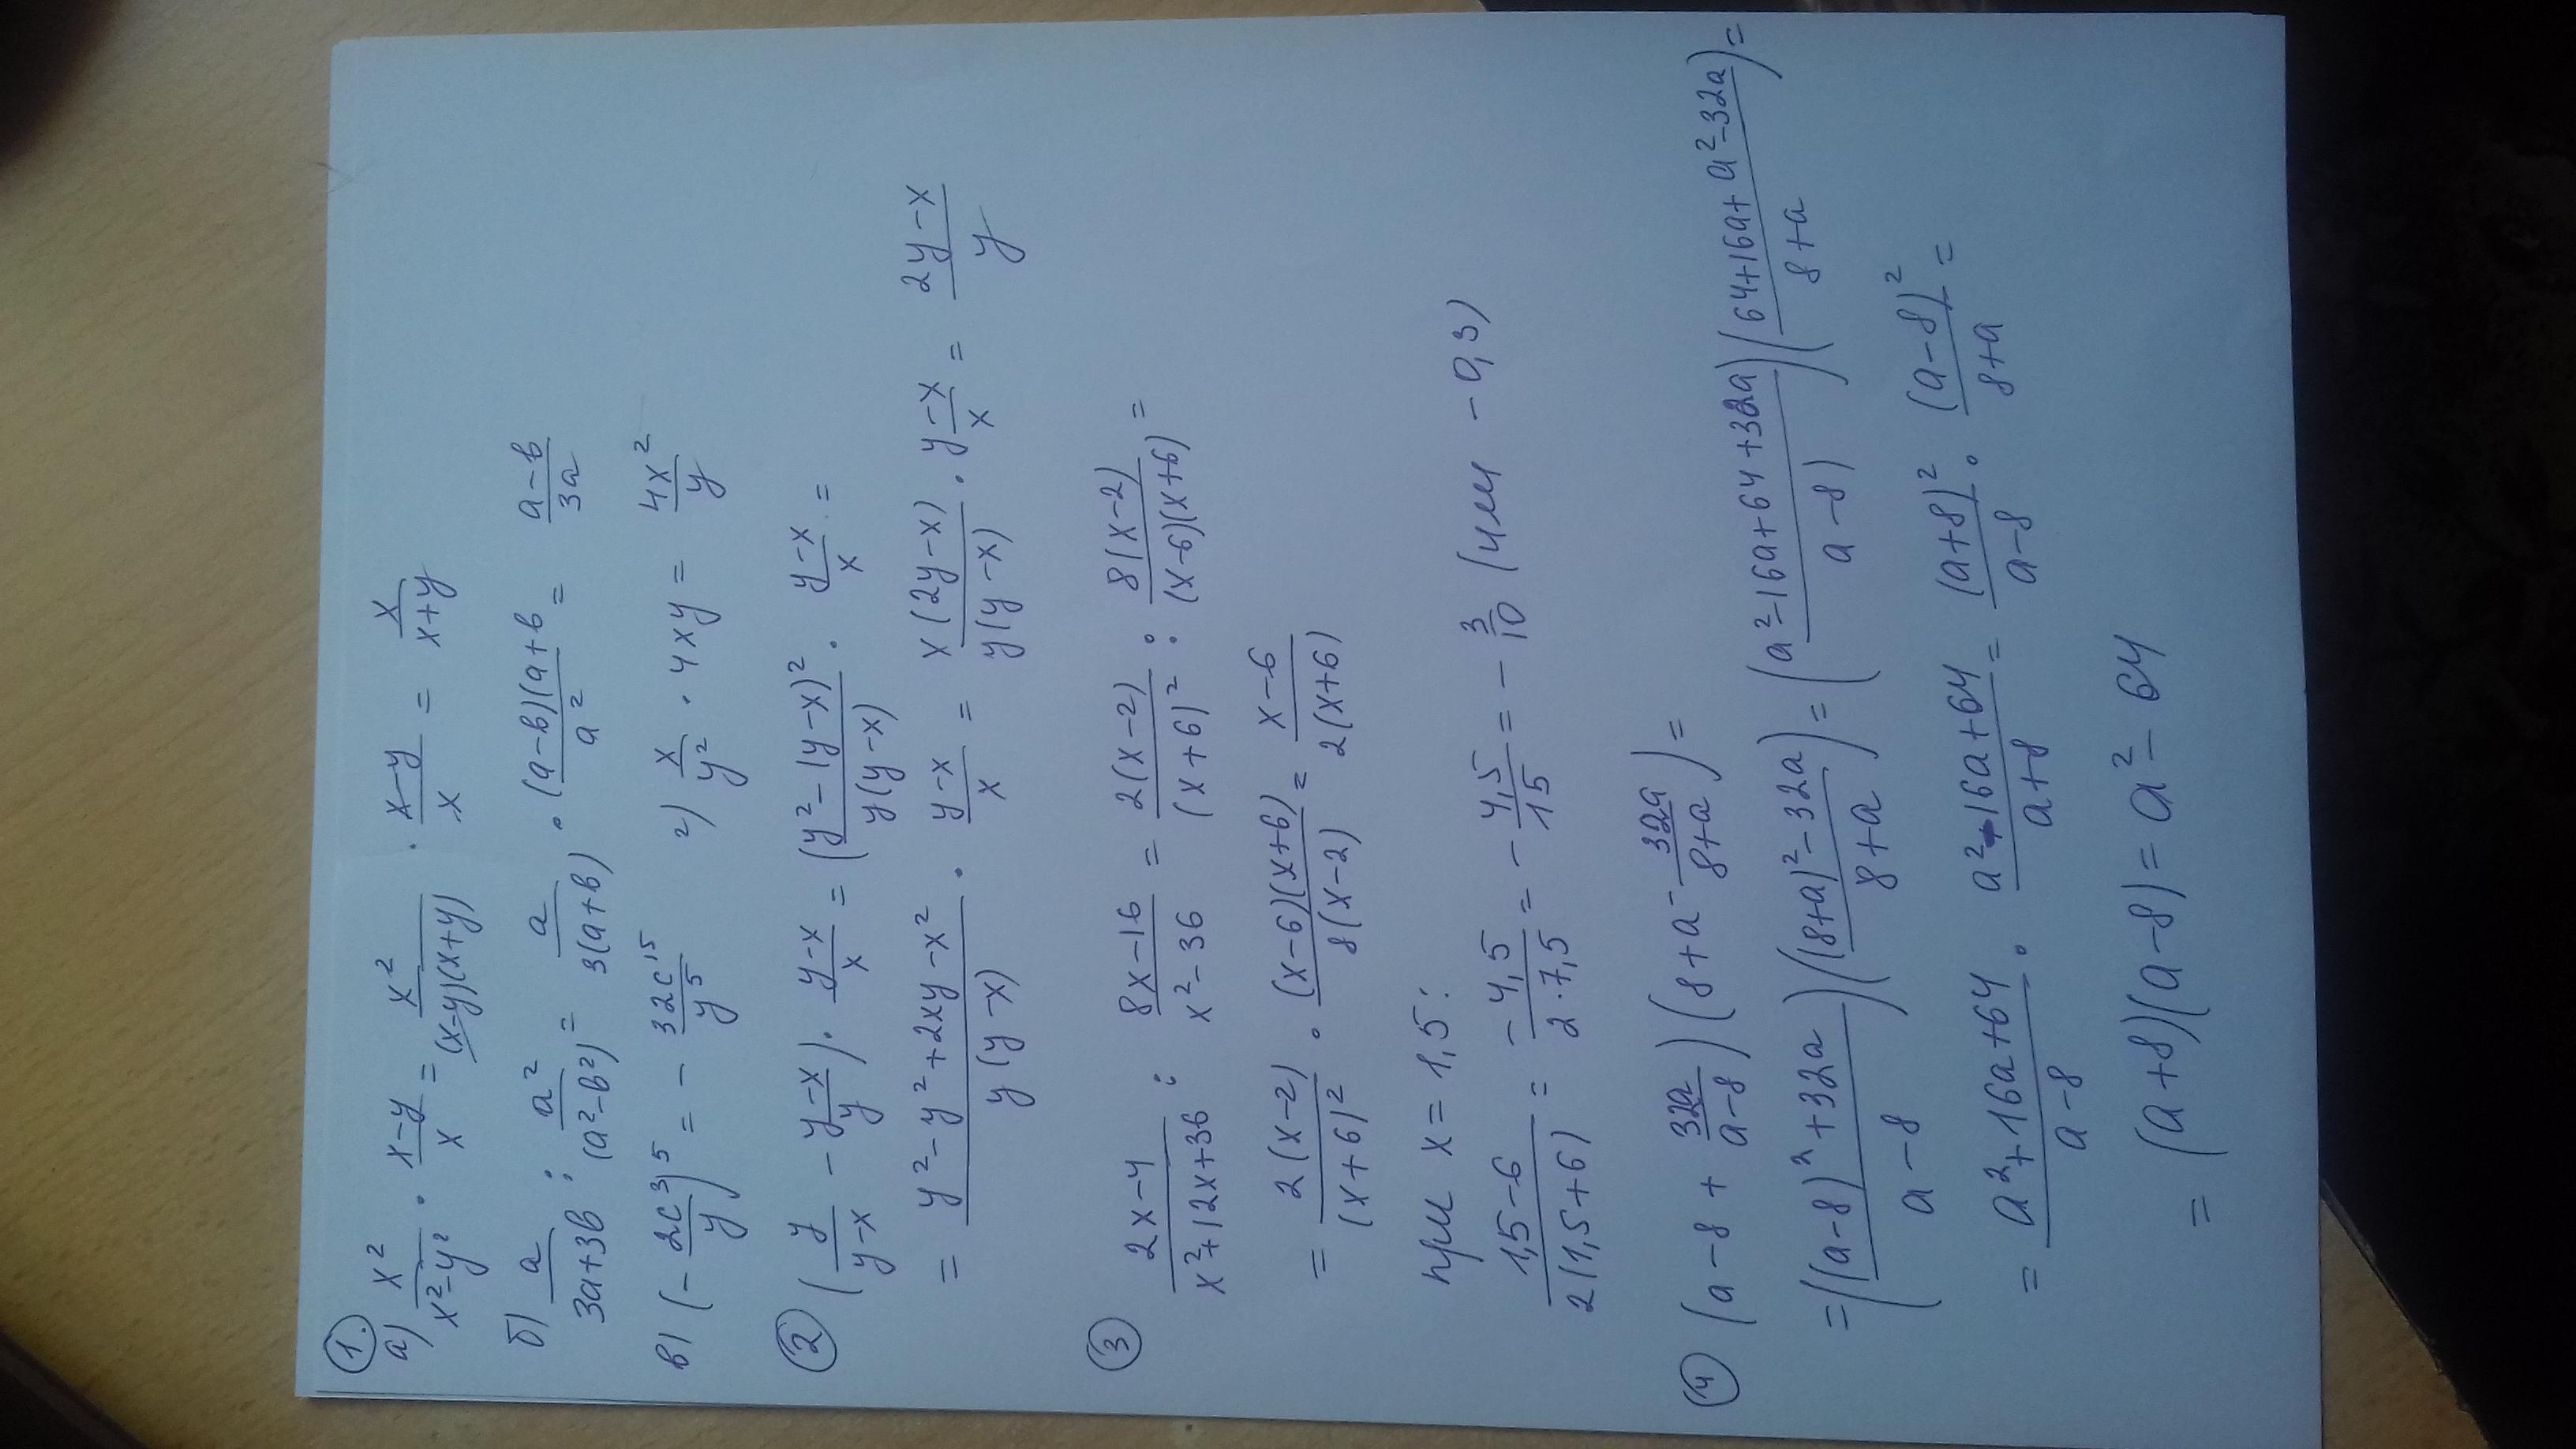 ①.
а) x²/(x²-y²) · (x-y)/x = x²/((x-y)(x+y)) · (x-y)/x = x/(x+y)
б) a/(3a+3b) : a²/(a²-b²) = a/(3(a+b)) · (a-b)(a+b/a² = (a-b)/(3a)
в) (-2c³/y)⁵ = - 32c¹⁵/y⁵ г) x/y² · 4xy = 4x²/y
② (y/(y-x) - (y-x)/y) · (y-x)/x = (y²-(y-x)²/(y(y-x)) · (y-x)/x =
= (y²-y²+2xy-x²)/(y(y-x)) · (y-x)/x = x(2y-x)/(y(y-x)) · (y-x)/x = (2y-x)/y
③ (2x-4)/(x²+12x+36) : (8x-16)/(x²-36) = 2(x-2)/(x+6)² : 8(x-2)/((x-6)(x+6)) =
= 2(x-2)/(x+6)² · (x-6)(x+6)/(8(x-2)) = (x-6)/(2(x+6))
при x = 1,5:
(1,5-6)/(2(1,5+6)) = -4,5/(2·7,5) = - 4,5/15 = - 3/10 (или -0,3)
④ (a-8 + 32a/(a-8)) (8+a - 32a/(8+a)) =
= (((a-8)²+32a)/(a-8)) (((8+a)²-32a)/(8+a)) = ((a²-16a+64+32a)/(a-8)) ((64+16a+a²-32a)/(8+a)) =
= (a²+16a+64)/(a-8) · (a²-16a+64)/(a+8) = (a+8)²/(a-8) · (a-8)²/(8+a) =
= (a+8)(a-8) = a²-64